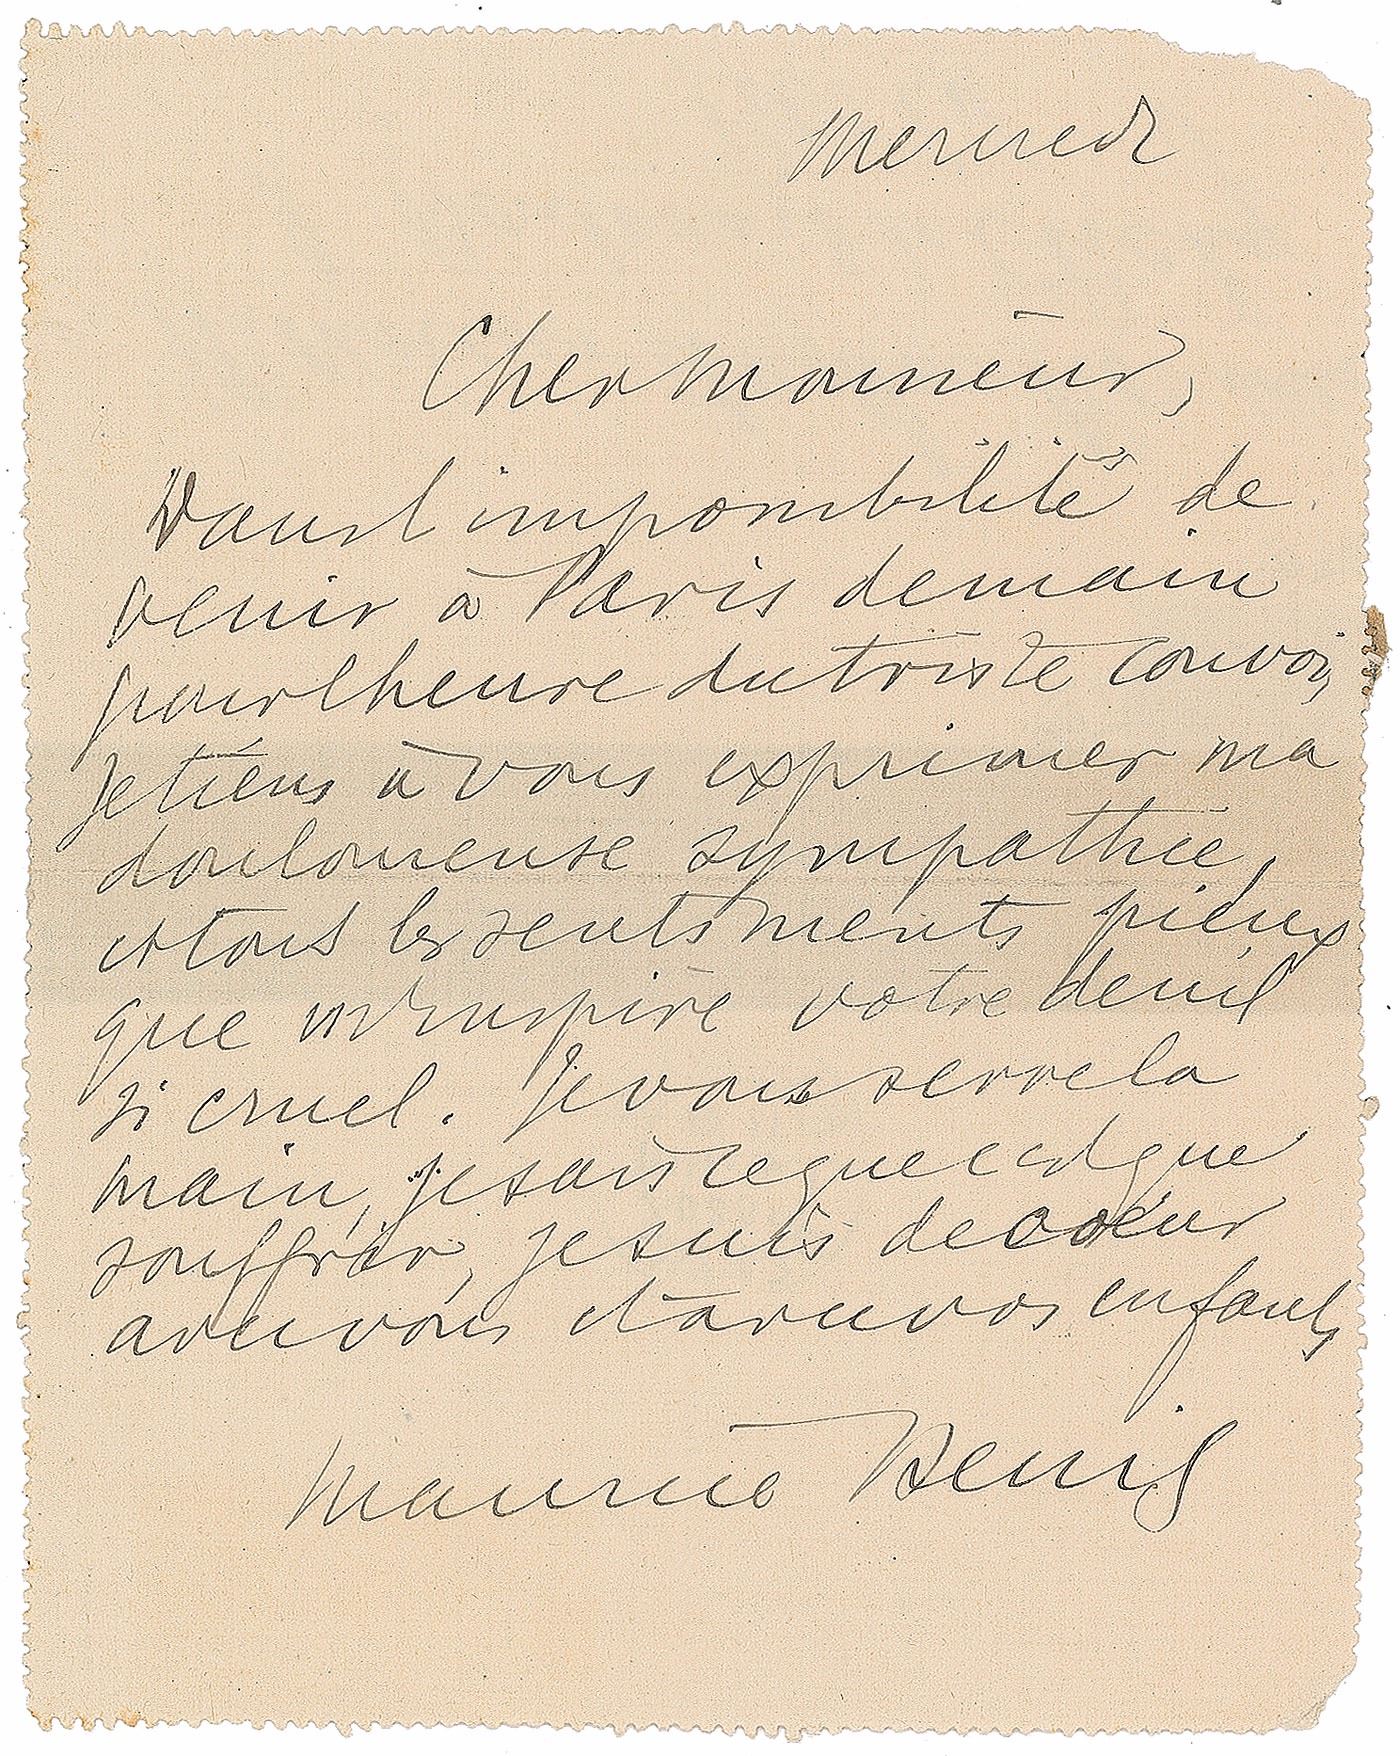 Mercredi
Cher Monsieur,
Dans l'impossibilité de
venir à Paris demain
pour l'heure du triste convoi,
je tiens à vous exprimer ma
douloureuse sympathie,
et tous les sentiments pieux
que m'inspire votre deuil
si cruel. Je vous serre la
main, je sais ce que c'est que
souffrir, je suis de cœur
avec vous et avec vos enfants
Maurice Denis